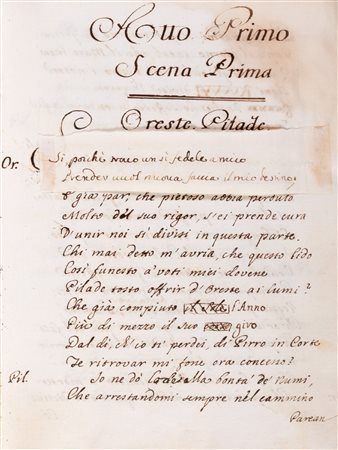 Atto Primo
Scena Prima
Oreste. Pilade
Or. Si poichè trovo un sì fedele amico
Prender vuol nuova faccia il mio destino;
E già par, che pietoso abbia perduto
Molto del suo rigor, s'ei prende cura
D'unir noi sì divisi in questa parte.
Chi mai detto m'avria, che questo lido
Così funesto a' voti miei dovese
Pilade tosto offrir d'Oreste ai lumi?
Che già compiuto l'Anno
Più di mezzo il suo giro
Dal dì ch'io ti perdei, di Pirro in Corte
Te ritrovar mi fone ora conceno?
Pil. Io ne dò lode alla bontà de' Numi,
Che arrestandomi sempre nel cammino
Parean